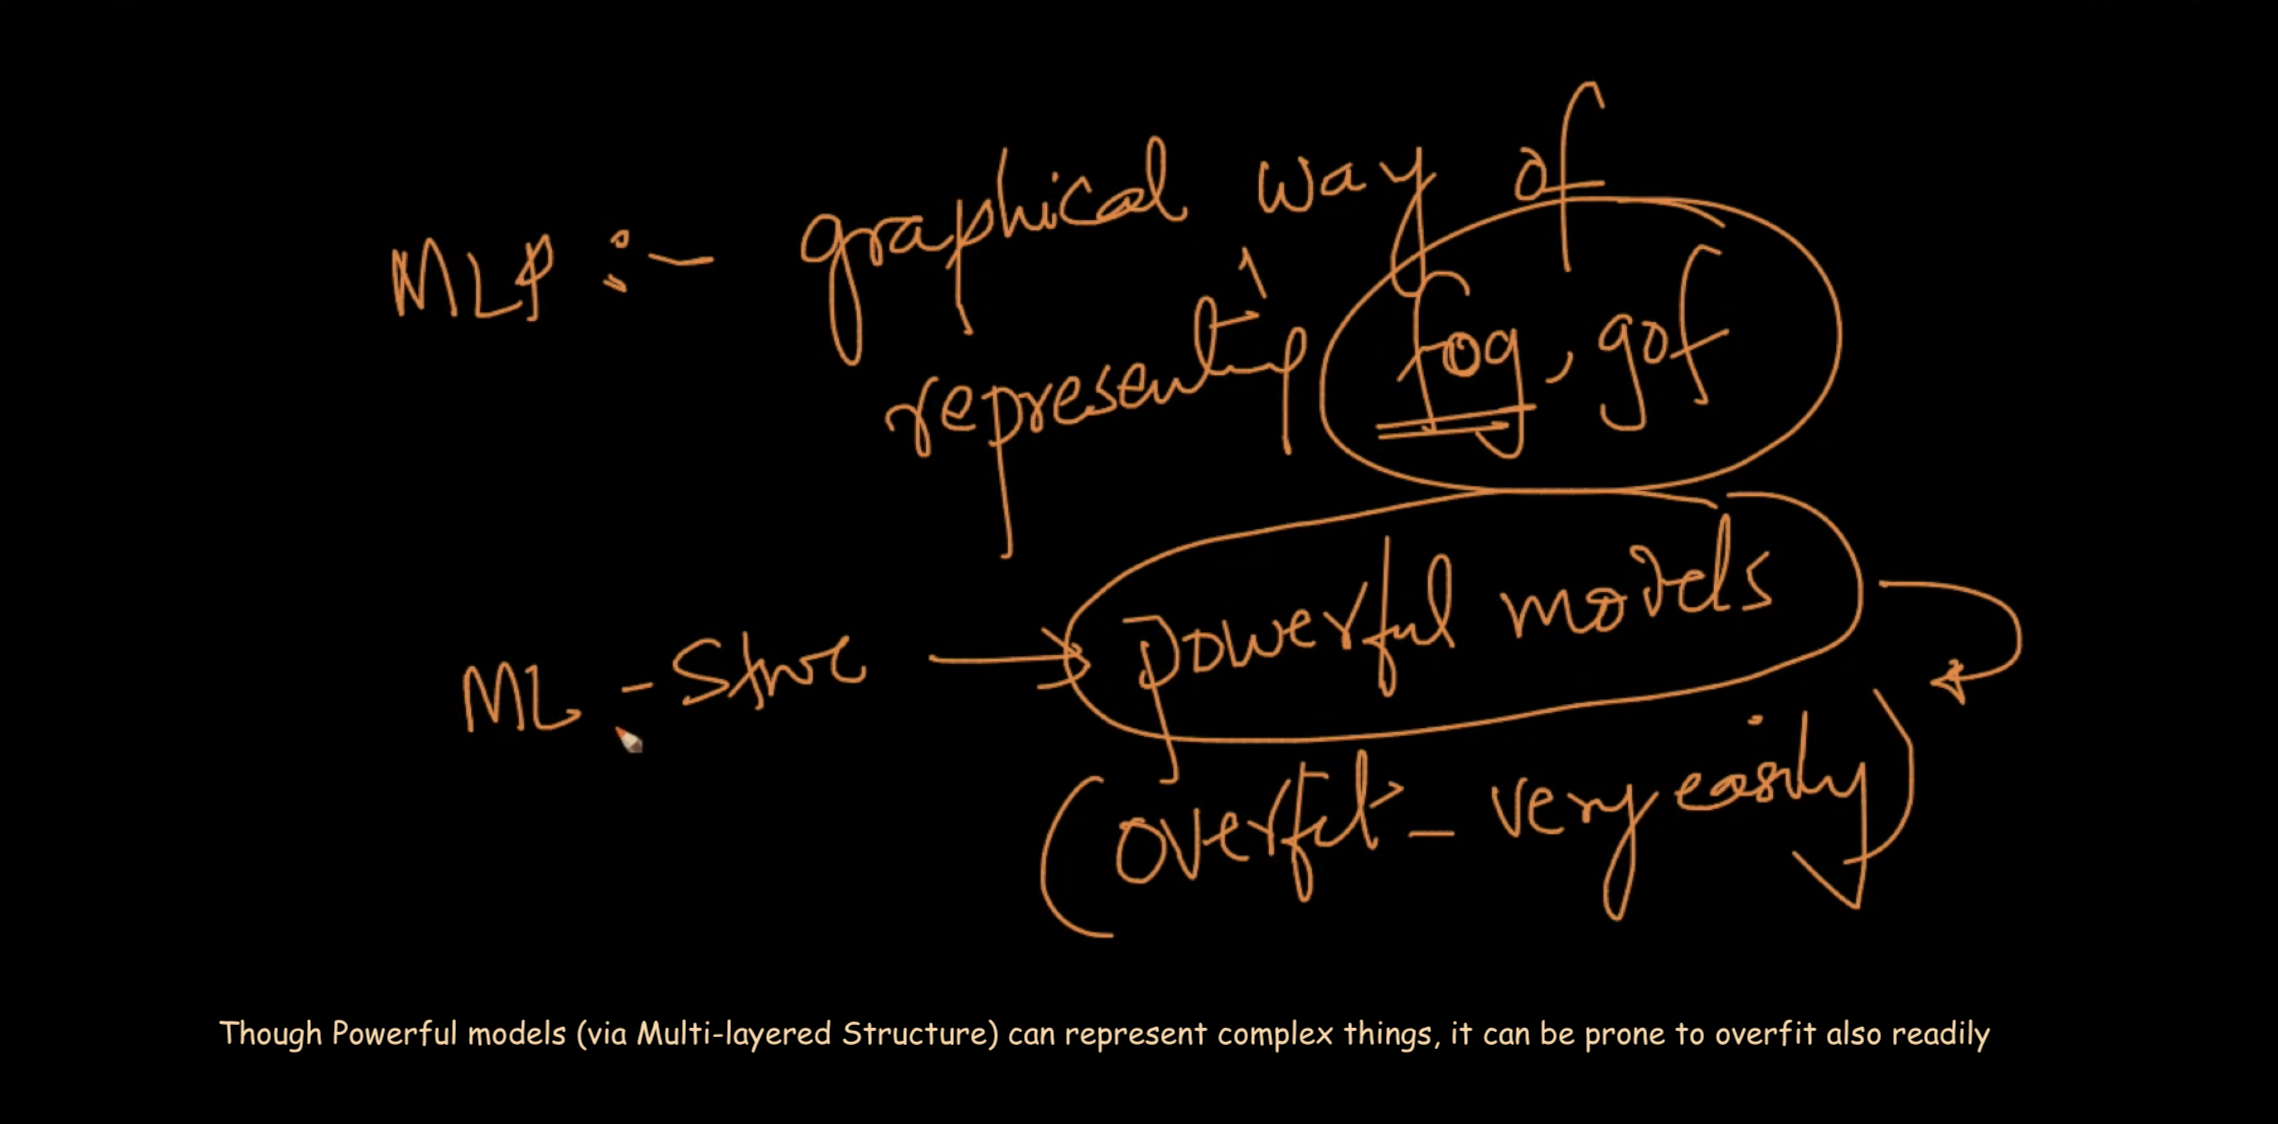 MLP :- graphical way of
representing fog, gof
ML-Struc → powerful models
(overfit - very easily)
Though Powerful models (via Multi-layered Structure) can represent complex things, it can be prone to overfit also readily